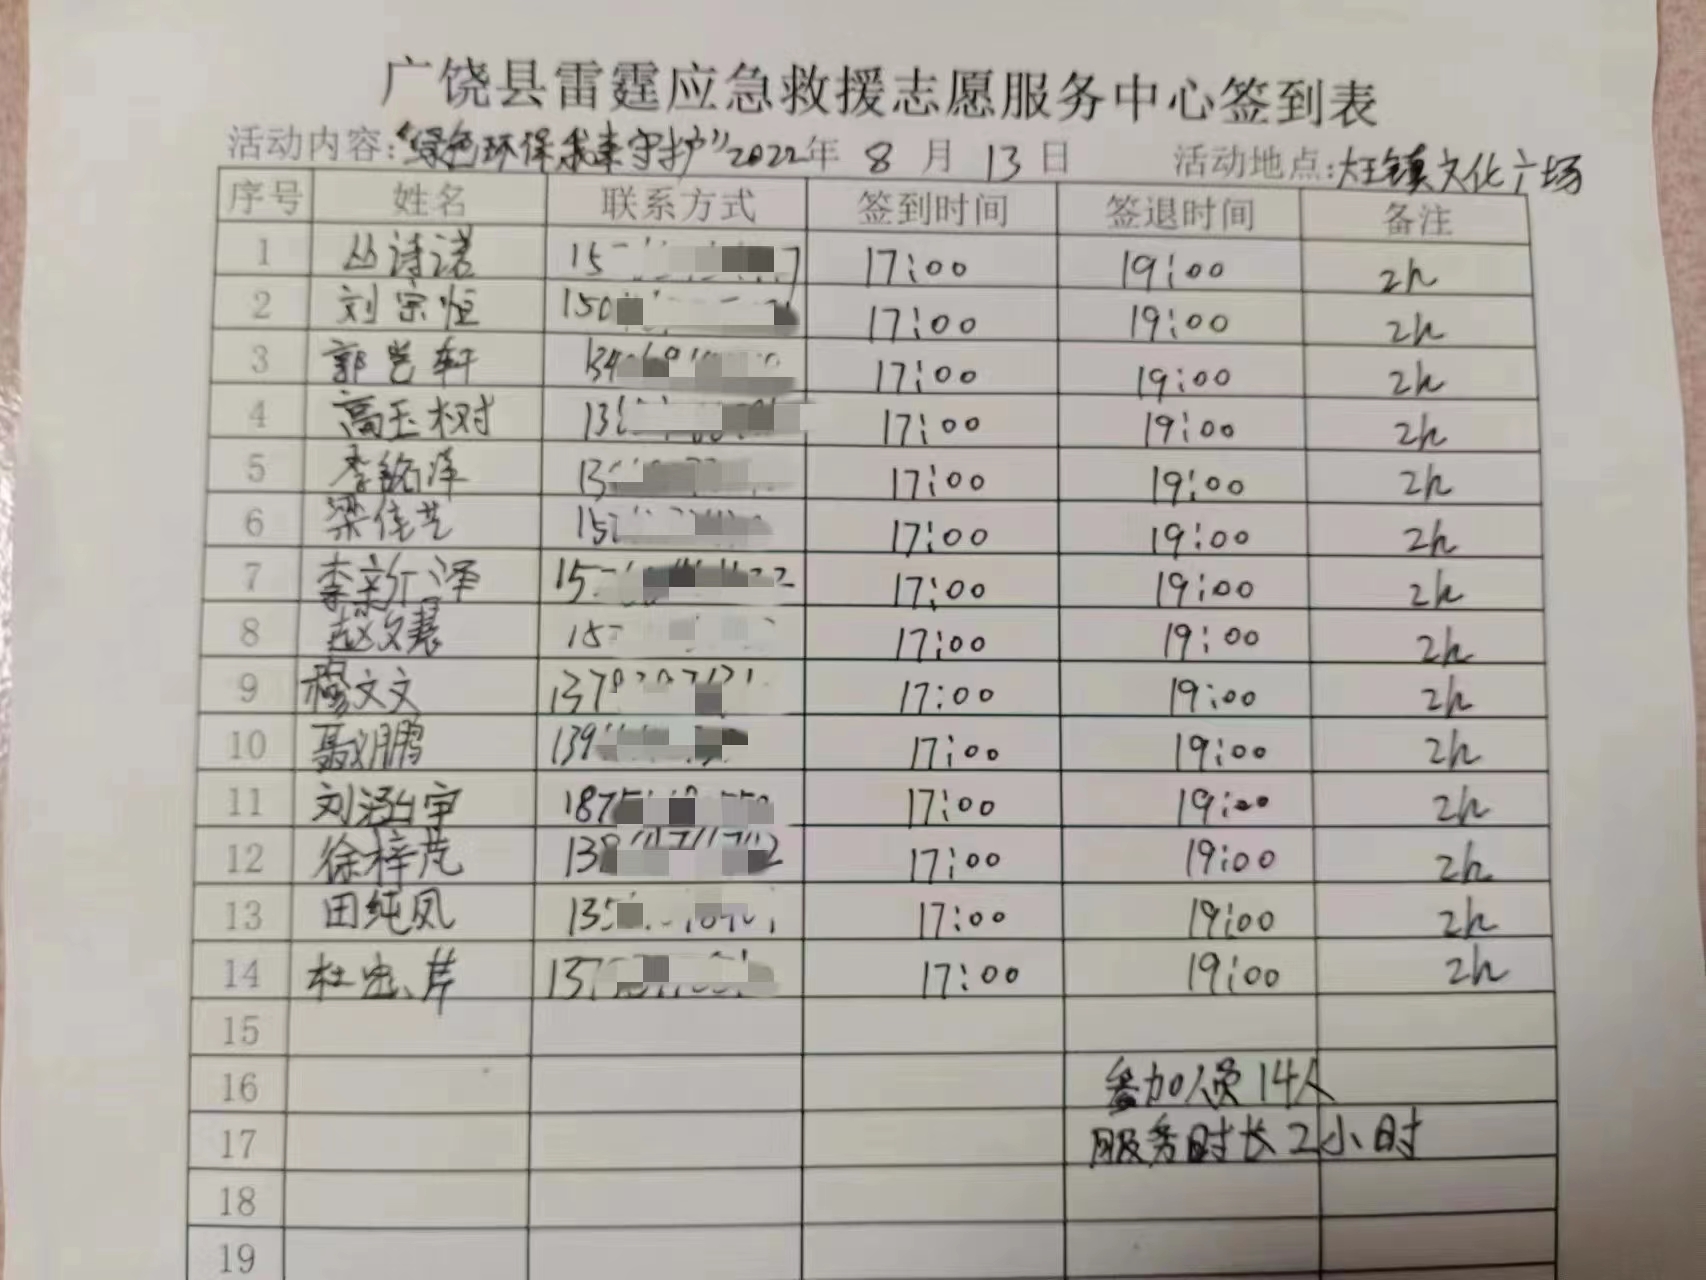 广饶县雷霆应急救援志愿服务中心签到表
活动内容:“绿色环保我来守护”2022年 8 月 13 日 活动地点:大王镇文化广场
序号 姓名 联系方式 签到时间 签退时间 备注
1 丛诗诺 15 7 17:00 19:00 2h
2 刘宗恒 150 17:00 19:00 2h
3 郭艺轩 134 17:00 19:00 2h
4 高玉树 13 17:00 19:00 2h
5 李铭泽 13 17:00 19:00 2h
6 梁佳艺 15 17:00 19:00 2h
7 李新泽 15 17:00 19:00 2h
8 赵文慧 15 17:00 19:00 2h
9 穆文文 137 17:00 19:00 2h
10 聂鹏 139 17:00 19:00 2h
11 刘涵宇 187 17:00 19:00 2h
12 徐梓芃 13 2 17:00 19:00 2h
13 田纯凤 135 17:00 19:00 2h
14 杜忠芹 137 17:00 19:00 2h
15
16 参加人员14人
17 服务时长2小时
18
19